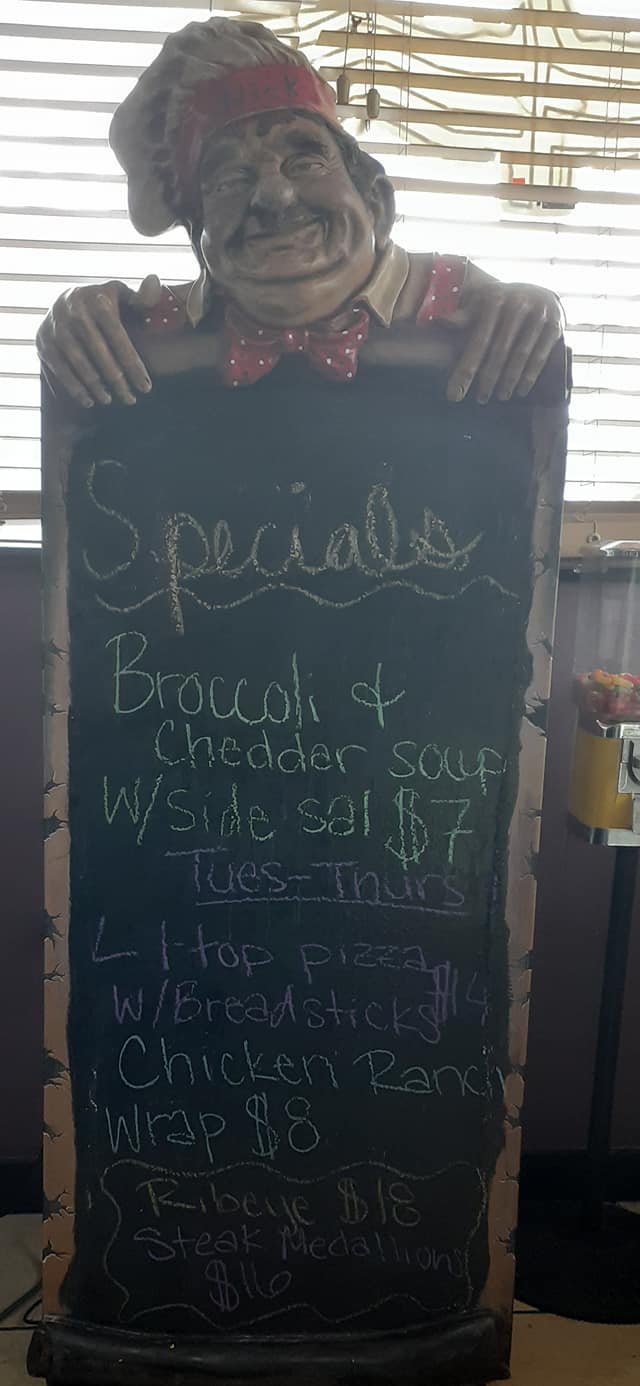 Specials
Broccoli &
Chedder soup
W/Side sal $7
Tues-Thurs
L 1-top pizza
W/Breadsticks $14
Chicken Ranch
Wrap $8
Ribeye $18
Steak Medallions
$16